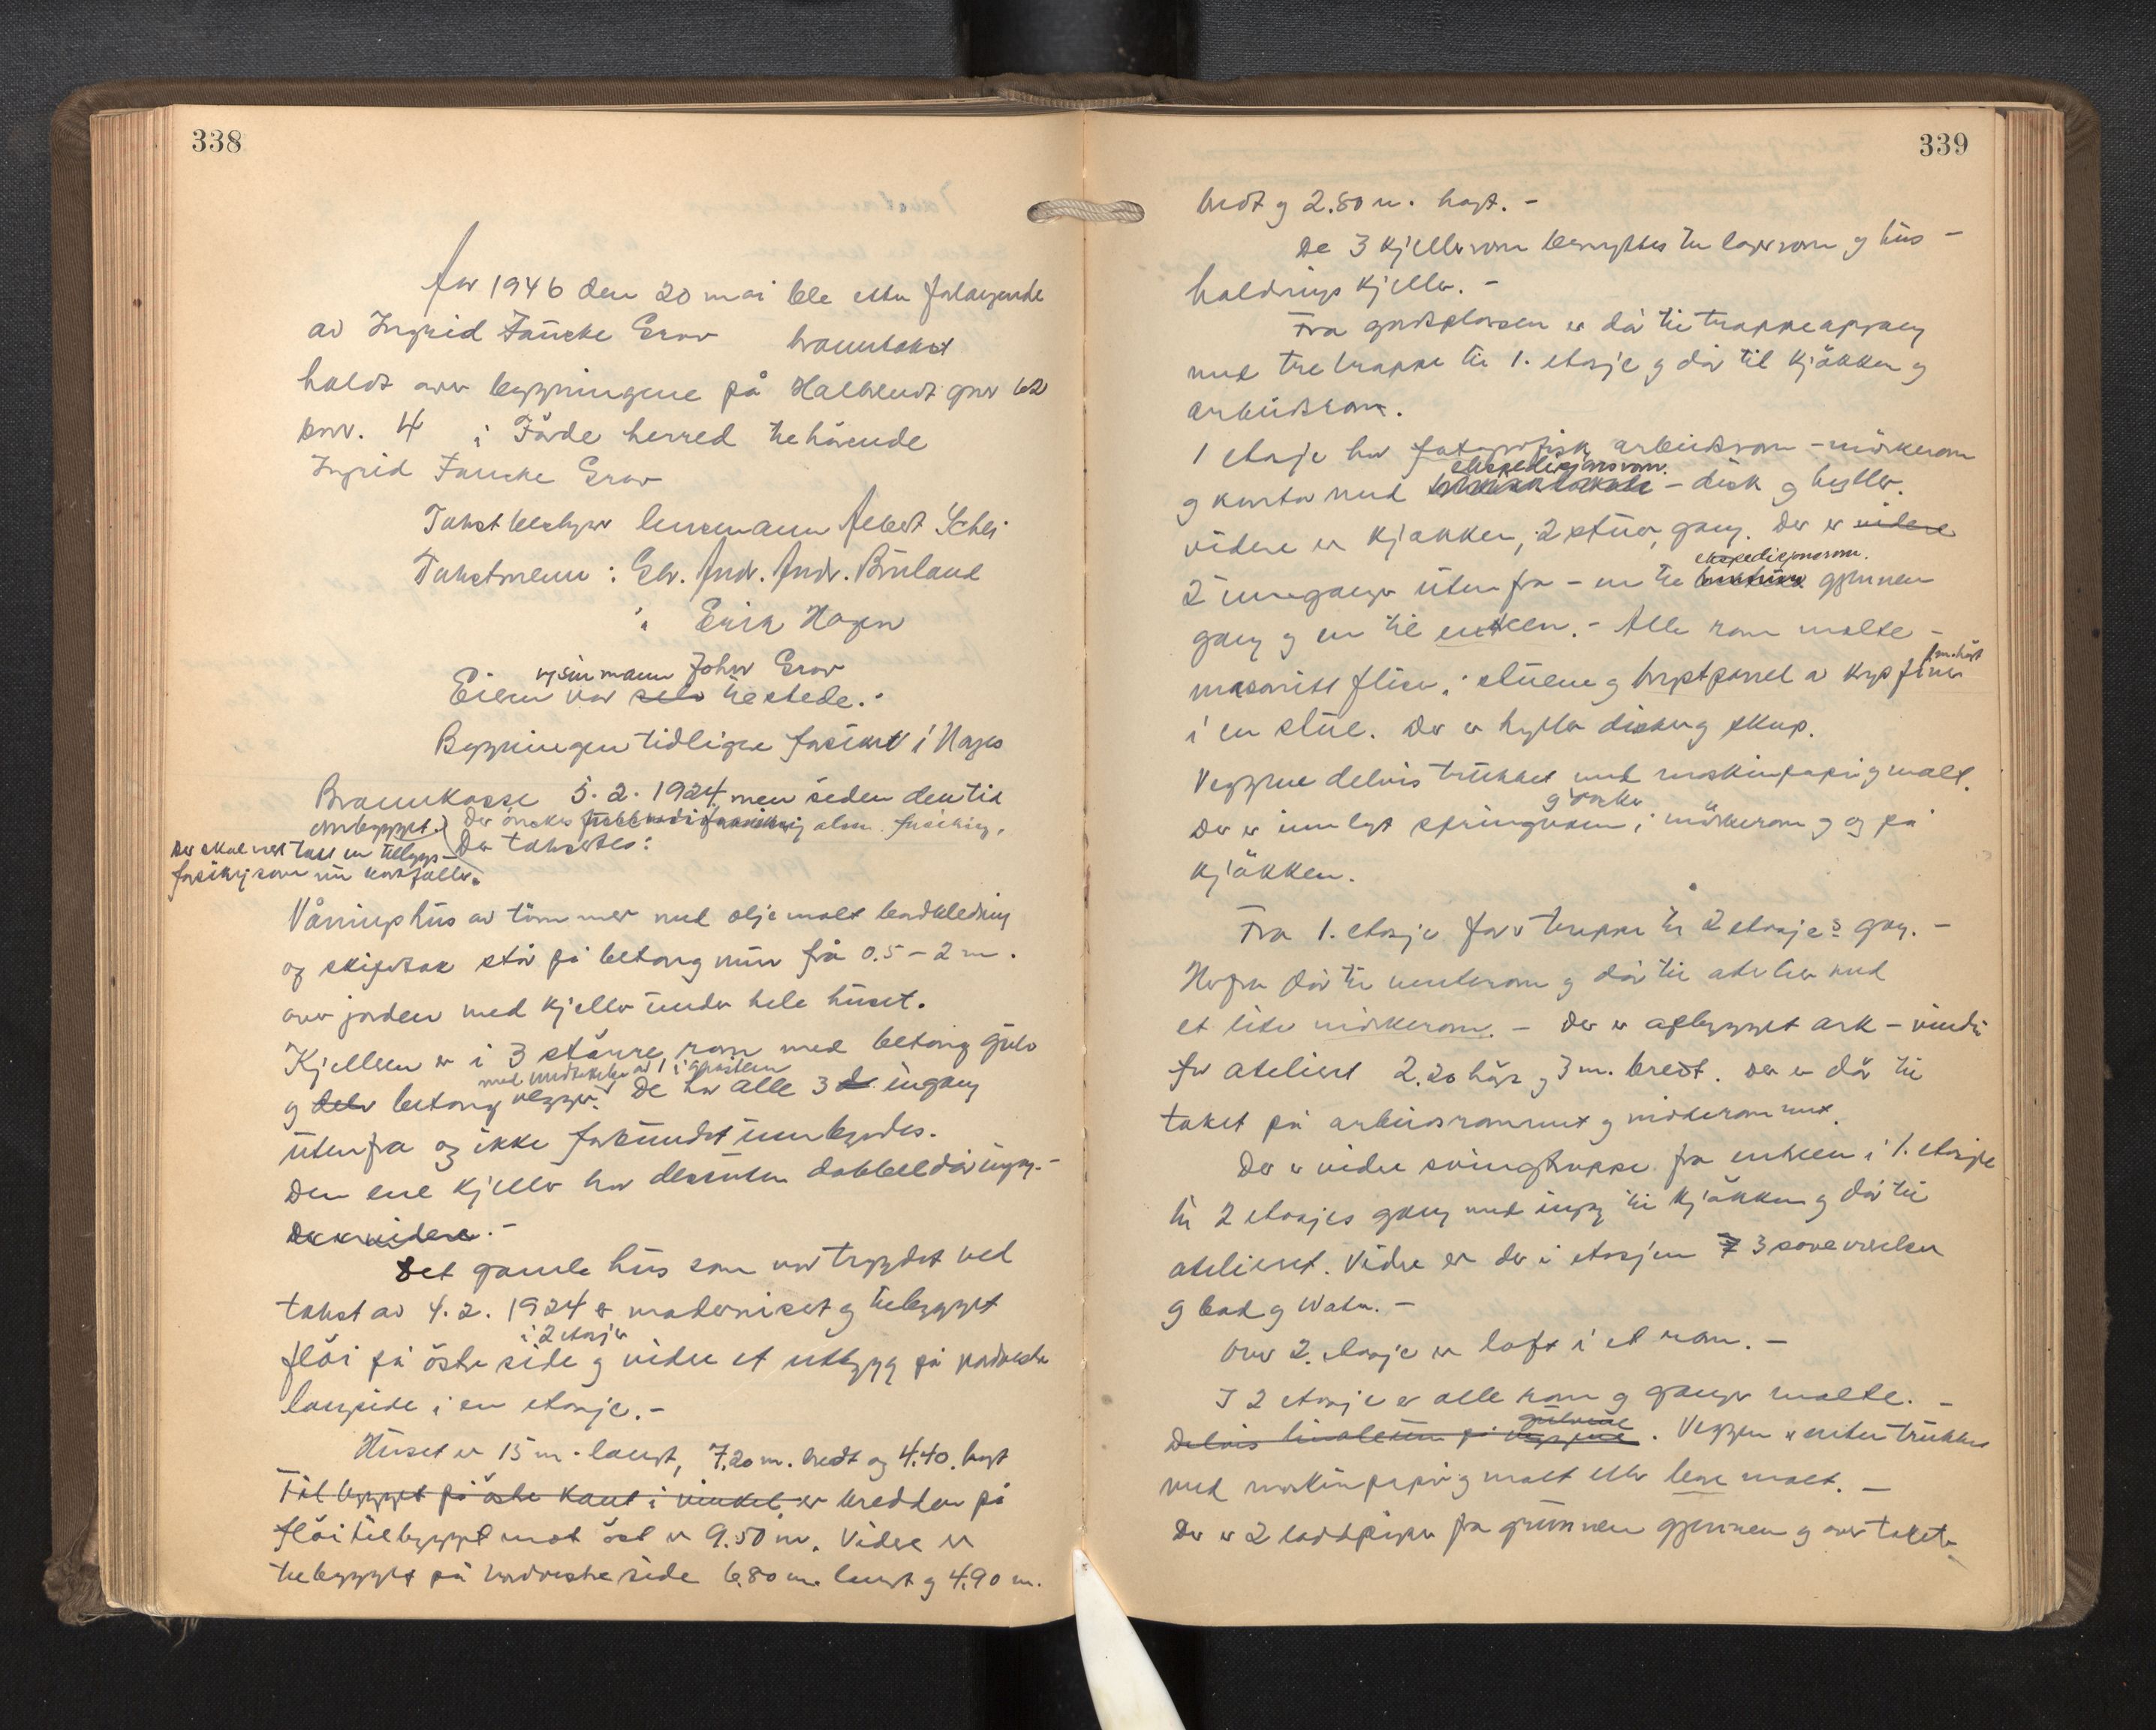 338
År 1946 den 20 mai ble etter forlangende
av Ingrid Fauske Grov branntakst
holdt over bygningene på Halbrendt gnr 62
bnr. 4 i Förde herred tilhörende
Ingrid Fauske Grov
Takstbestyrer lensmann Albert Schei
Takstmenn: Gbr. Andr. Andr. Bruland
Erik Hagen
og sin mann John Grov
Eieren var selv tilstede.
Bygningen tidligere forsikret i Norges
Brannkasse 5.2.1924 men siden den tid
ombygget. Der önskes alm. forsikring.
Der skal vert tatt en tilleggs-
forsikring som nu bortfaller.
Der takseres:
Våningshus av tömmer med oljemalt bordkledning
og skifertak står på betong mur frå 0.5 - 2 m.
over jorden med kjeller under hele huset.
Kjelleren er i 3 större rom med betong gulv
med unntakelse av 1 i gråstein
g delv betong vegger. De har alle 3 d ingang
utenfra og ikke forbundet innbyrdes.
Den ene kjeller har dessuten dobbeldör inng.-
Der er videre.-
Det gamle hus som var trygdet ved
takst av 4.2.1924 er modernisert g tilbygget
i 2 etasjer
flöi på östre side g videre et utbygg på nordvestre
langside i en etasje.-
Huset er 15 m. langt, 7,20 m. bredt og 4.40. högt
Tilbygget på östre kant i vinkel er bredden på
flöitilbygget mot öst er 9.50 m. Videre er
tilbygget på nordvestre side 6.80 m. langt g 4.90 m.
339
bredt g 2.80 m. högt.-
De 3 kjellerrom benyttes til lagerrom g hus-
holdnings kjeller.-
Fra gårdsplassen er dör til trappeoppgang
med tretrappe til 1. etasje g dör til kjökken g
arbeidsrom.
1 etasje har fotografisk arbeidsrom - mörkerom
ekspedisjonsrom.
g kontor med - disk g hyller.
videre er kjökken, 2 stuer, gang. Der er videre
ekspedisjonsrom.
2 innganger utenfra - en til gjennem
gang g en til entreen.- Alle rom malte -
1 m. högt
masonitt fliser i stuene g brystpanel av kryssfiner
i en stue. Der er hyller disker g skap.
Veggene delvis trukket med maskinpapir g malt.
g vasker
Der er innlagt springvann i mörkerom g og på
kjökken.
Fra 1. etasje förer trappe til 2 etasjes gang.-
Herfra dör til venterom g dör til atelier med
et lite mörkerom.- Der er opbygget ark - vindu
for atelieret 2.20 höi g 3 m. bredt. Der er dör til
taket på arbeidsrommet g mörkerommet.
Der er videre svingtrappe fra entreen i 1. etasje
til 2 etasjes gang med inng. til kjökken g dör til
atelieret. Videre er der i etasjen 3 soveværelser
g bad g Water.-
Over 2. etasje er loft i et rom.-
I 2 etasje er alle rom g ganger malte.-
gulvene
Delvis linoleum på veggene. Veggen er enten trukket
med maskinpapir g malt eller bare malt.-
Der er 2 laddpiper fra grunnen gjennem g over taket.-